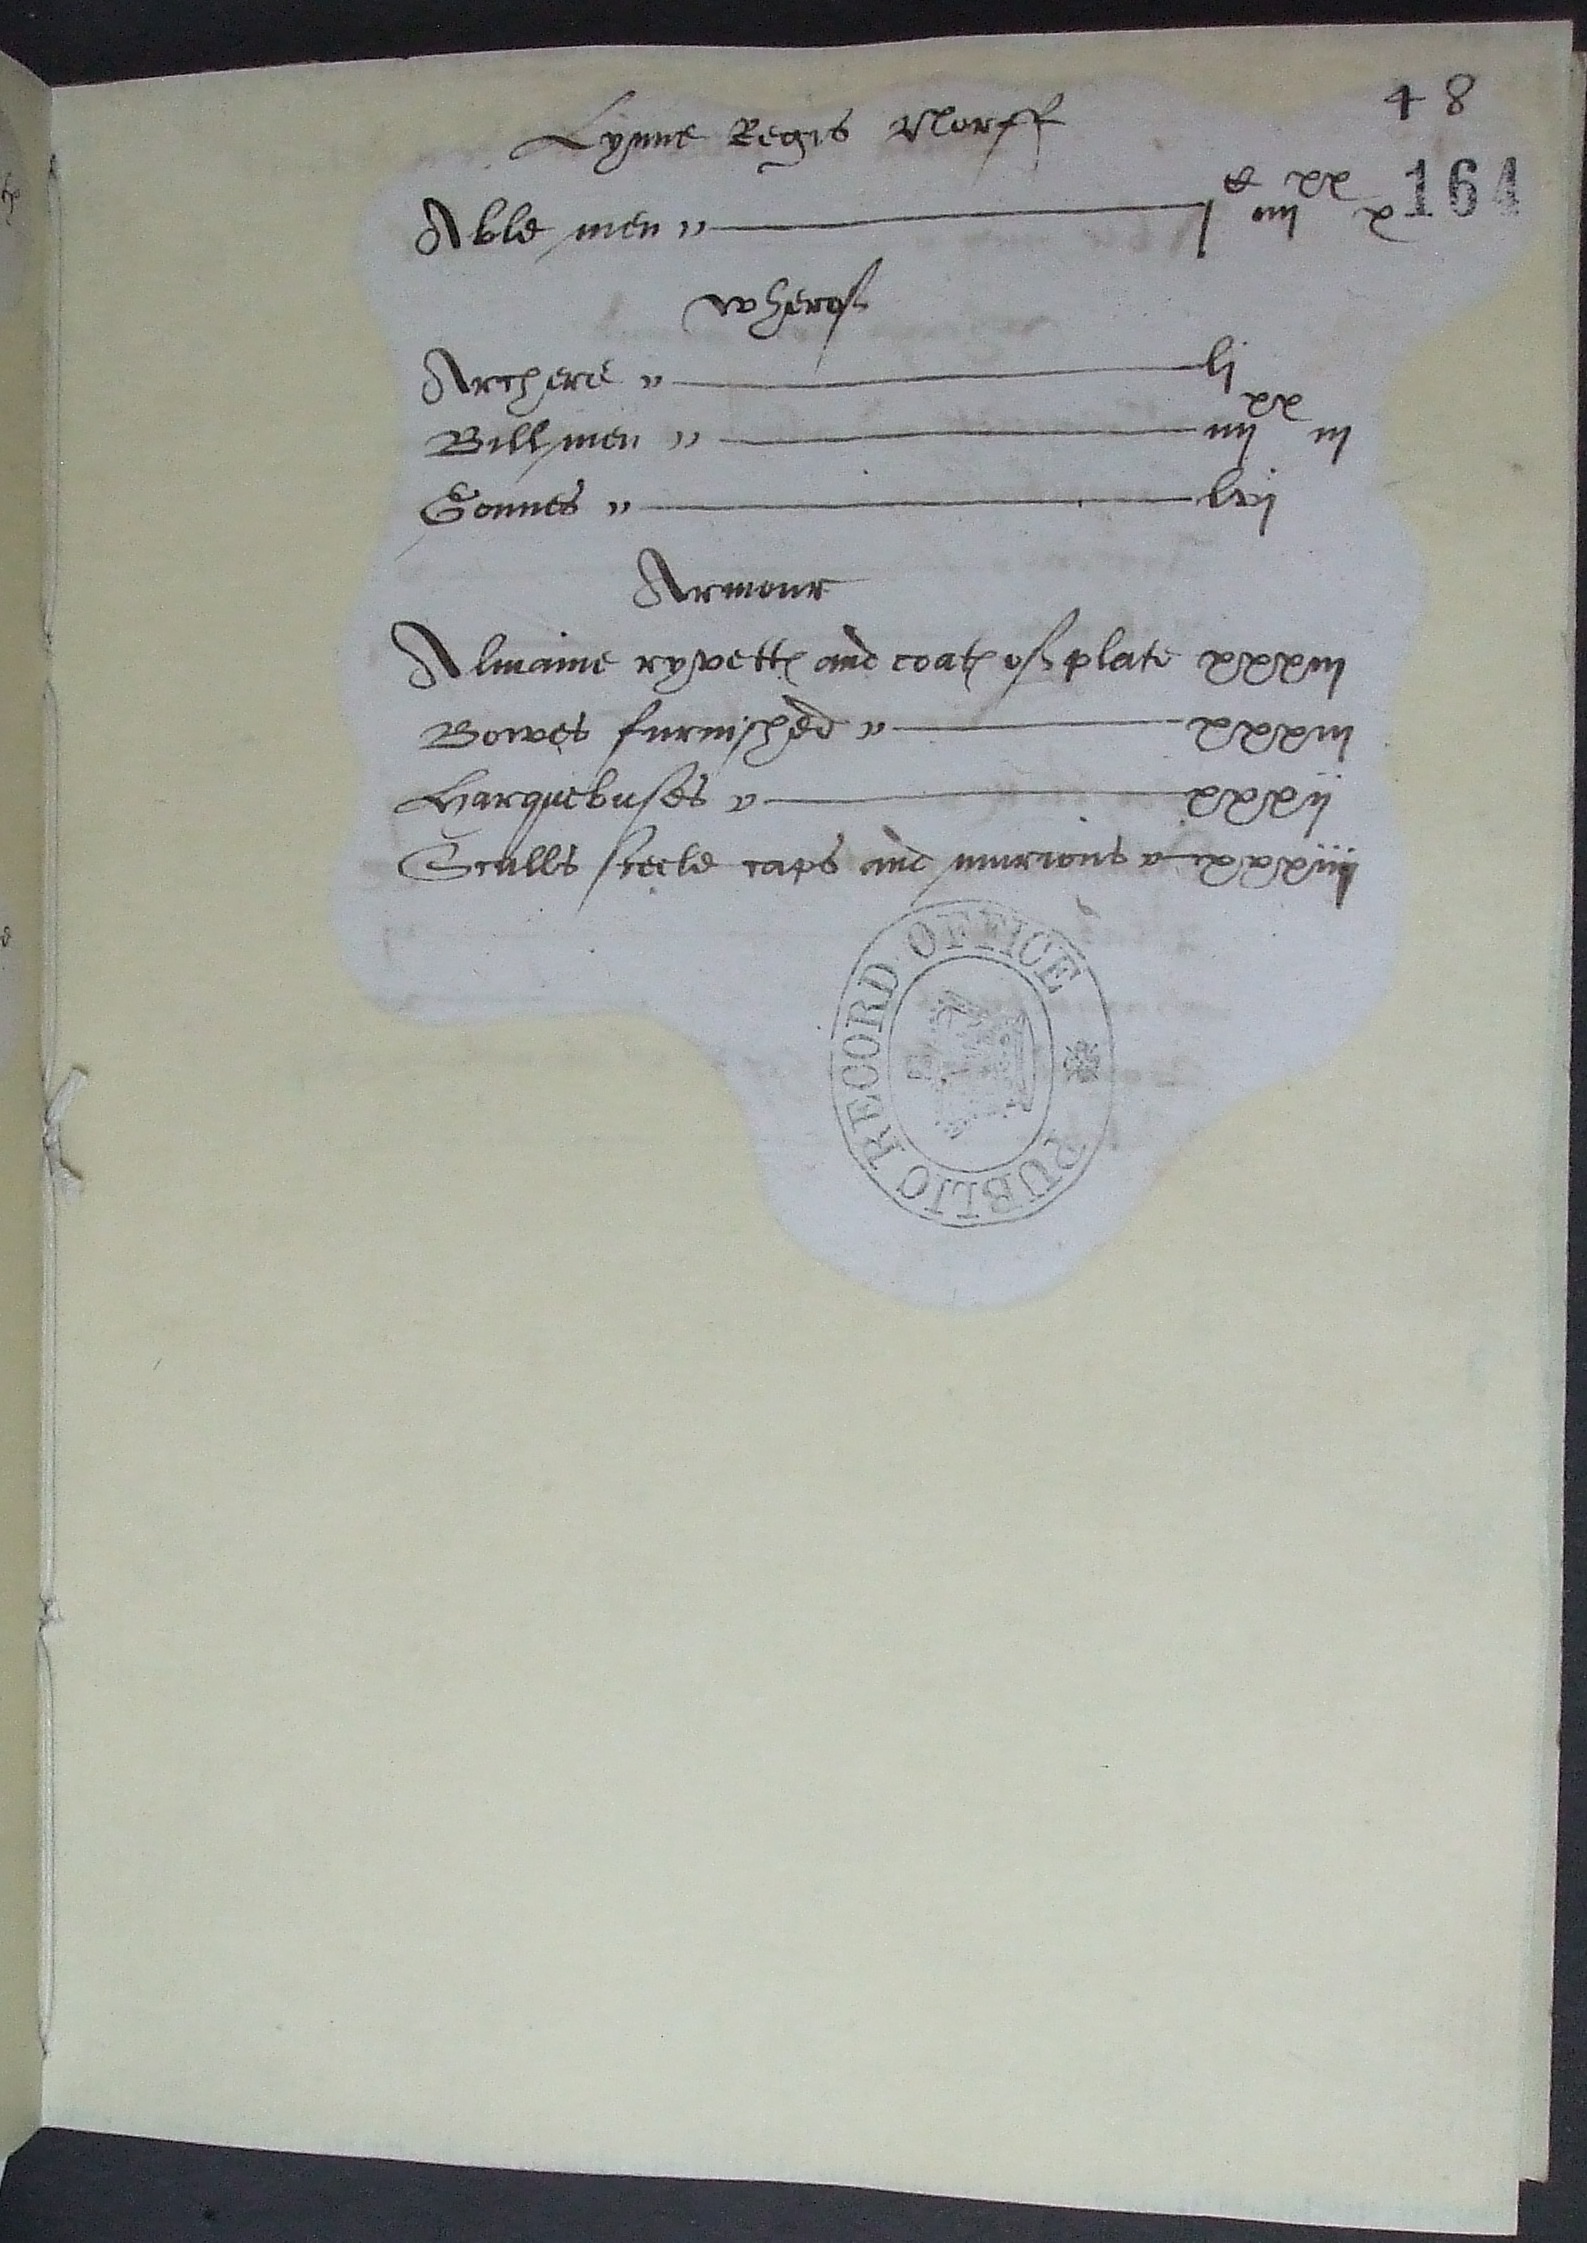 48
164
Lynne Regis Norff
Able men " j C iiij xx x
wherof
Archers " lj
Billmen " iiij xx iij
Gonnes " lvj
Armour
Almaine ryvettes and coates of plate xxxiij
Bowes furnished " xxxiij
Harquebuses " xxxij
Sculls steele caps and murions " cxxxiiij
PUBLIC RECORD OFFICE